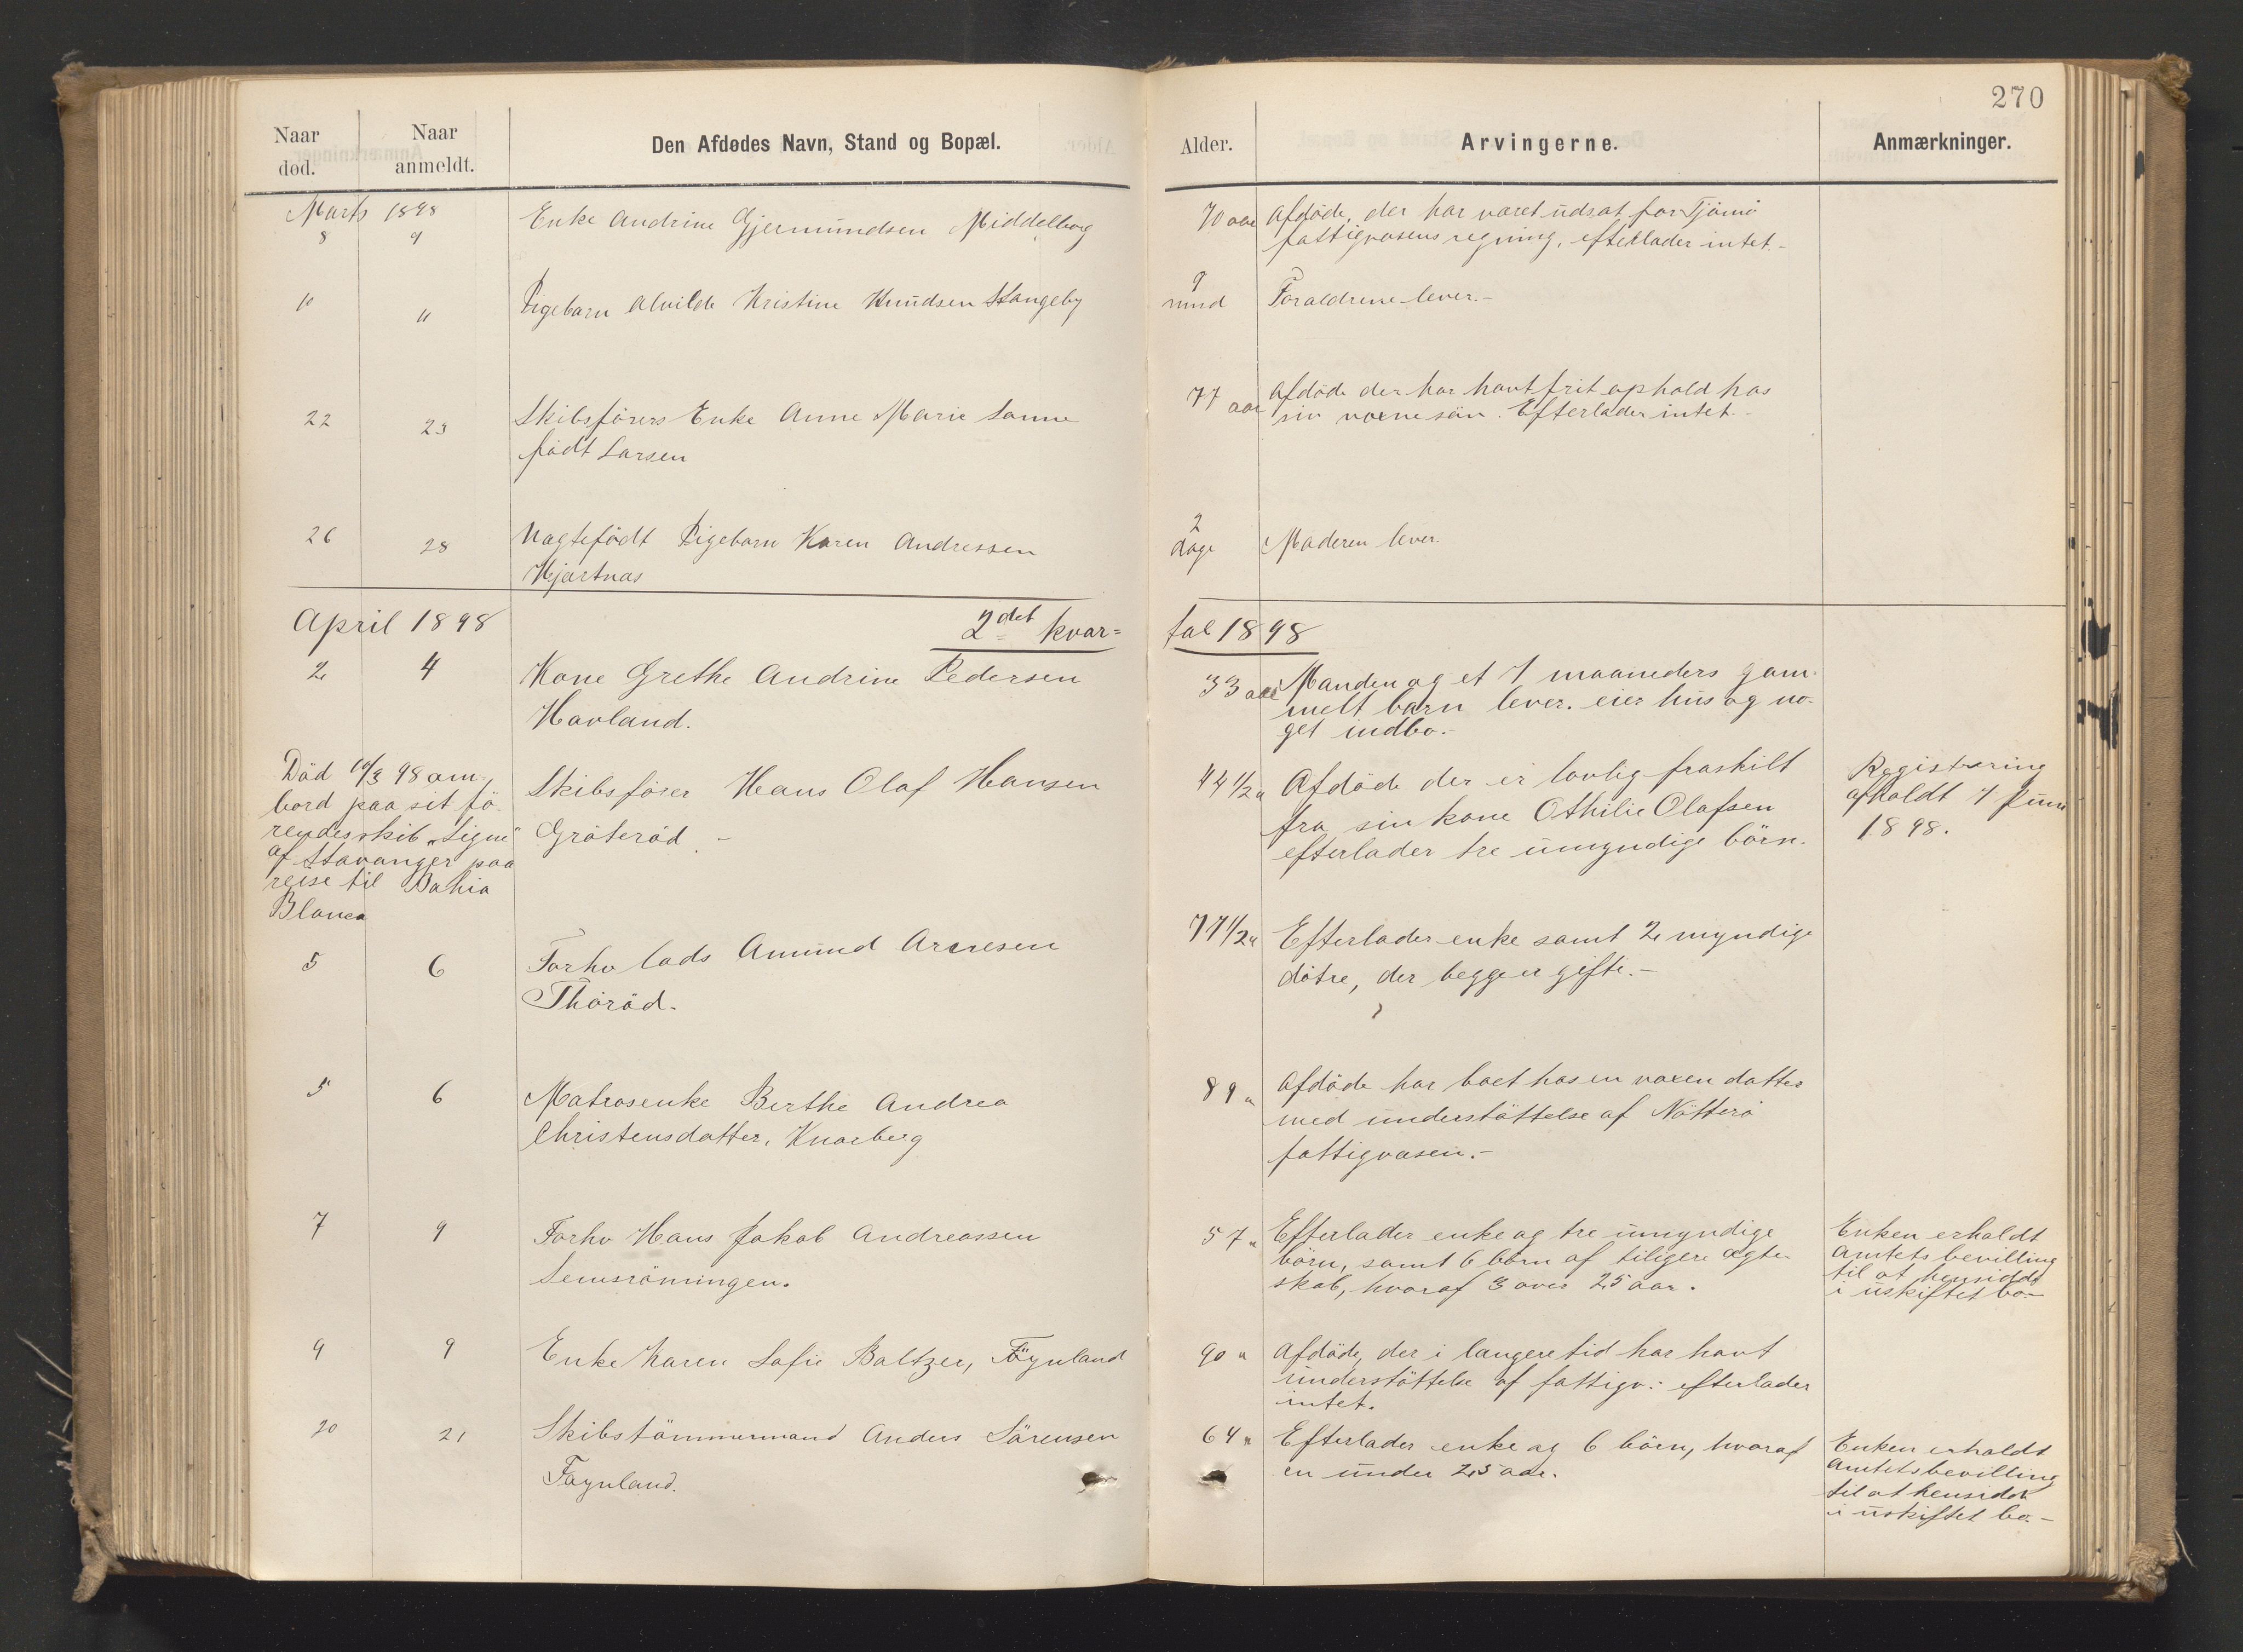 270
Naar død.
Naar anmeldt.
Den Afdødes Navn, Stand og Bopæl.
Alder.
Arvingerne.
Anmærkninger.
Marts 1898
8 9 Enke Andrine Gjermundsen Middelborg
70 aar Afdøde, der har været udsat for Tjømø
fattigvæsens regning, efterlader intet.-
10 11 Pigebarn Alvilde Kristine Knudsen Stangeby
9 mnd Forældrene lever.-
22 23 Skibsførers Enke Anne Marie Sanne
født Larsen
77 aar Afdøde der har havt frit ophold hos
sin voxne søn. Efterlader intet.-
26 28 Uægtefødt Pigebarn Karen Andressen
Hjertnæs
2 dage Moderen lever.
April 1898 2det kvar=
tal 1898
2 4 Kone Grethe Andrine Pedersen
Havland.
33 aar Manden og et 7 maaneders gam-
melt barn lever. eier hus og no-
get indbo.-
Död 10/3 98 om-
bord paa sit fö-
rendes skib "Signe"
af Stavanger paa
reise til Bahia
Blanca
Skibsfører Hans Olaf Hansen
Gröteröd.-
44 1/2 a Afdöde der er lovlig fraskilt
fra sin kone Othilie Olafsen
efterlader tre umyndige börn.
Registrering
afholdt 7 Juni
1898.
5 6 Forhv lods Amund Arnesen
Thöröd.-
77 1/2 a Efterlader enke samt 2 myndige
døtre, der begge er gifte.-
5 6 Matrosenke Berthe Andrea
Christensdatter, Knarberg
89 " Afdöde har boet hos en voxen datter
med understöttelse af Nötterö
fattigvæsen.-
7 9 Forhv Hans Jakob Andreassen
Semsröningen.
57 " Efterlader enke og tre umyndige
börn, samt 6 börn af tiligere ægte-
skab, hvoraf 3 over 25 aar.
Enken erholdt
Amtets bevilling
til at hensidde
i uskiftet bo-
9 9 Enke Karen Sofie Baltzer, Föynland
90 " Afdöde, der i længere tid har havt
understöttelse af fattigv: efterlader
intet.
20 21 Skibstömmermand Anders Sörensen
Föynland.
64 " Efterlader enke og 6 börn, hvoraf
en under 25 aar.
Enken erholdt
Amtets bevilling
til at hensidde
i uskiftet bo.-